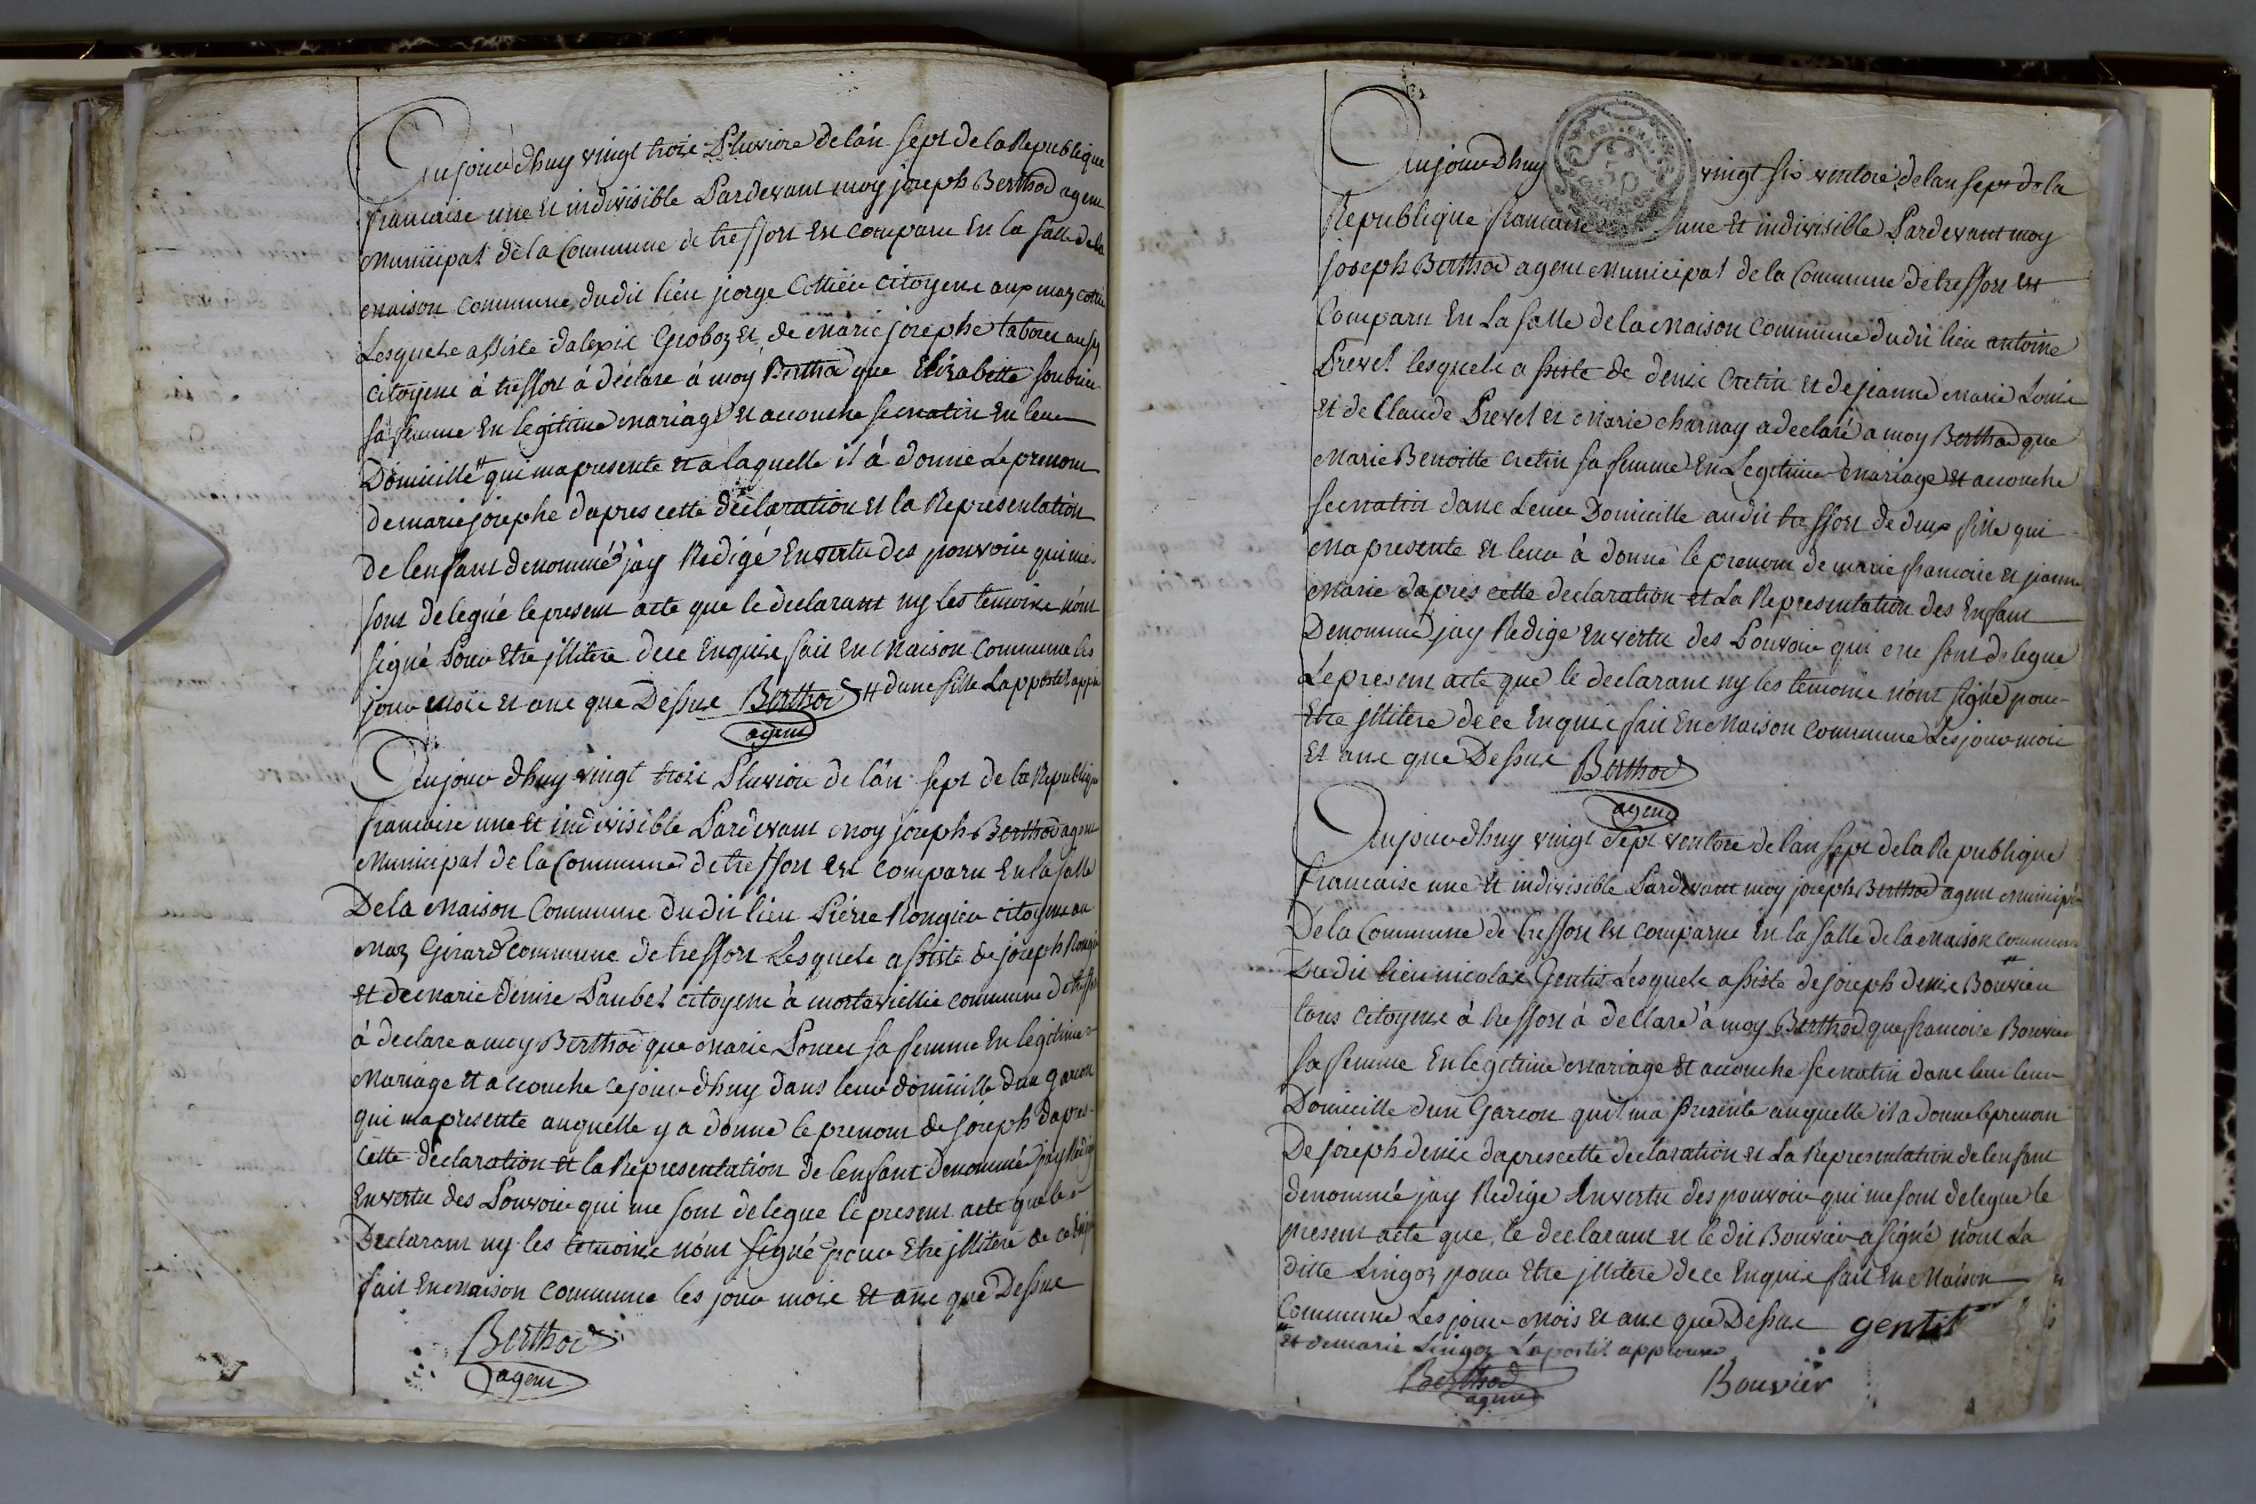 Aujourdhuy vingt trois Pluviose de lan sept de la Republique
francaise une et indivisible Pardevant moy joseph Berthod agent
Municipal de la Commune de treffort est comparu En la salle de la
Maison Commune dudit lieu jorge Cottier citoyens aux maz
Lesquels assiste dalexis Groboz et de Marie josephe tabouret aussy
citoyens à treffort à déclare à moy Berthod que Elizabette
sa femme En legitime mariage et accouche ce matin En leur
Domicille # qui ma presente et a laquelle il à donne Le prenom
de marie josephe dapres cette déclaration et la Representation
de lenfant denommé jay Redigé En vertu des pouvoir qui me
sont delegué le present acte que le declarant ny Les temoins n'ont
signé Pour Etre jllitere de ce Enquis fait En Maison Commune les
jour mois et ans que Dessus Berthod # dune fille Lappostil app
agent
Aujourdhuy vingt trois Pluviose de lan sept de la Republique
francaise une et indivisible Pardevant moy joseph Berthod agent
Municipal de la Commune de treffort est comparu En la salle
De la Maison Commune dudit lieu Pierre Rougier citoyens au
Maz Girard commune de treffort Lesquels assiste de joseph Rougier
et de marie denise Paubel citoyens à commune de treffort
à declare a moy Berthod que Marie Poncet sa femme En legitime
Mariage et a ccouche ce jourdhuy dans leur domicille dun garcon
qui ma presente auquelle y a donne le prenom de joseph dapres
cette declaration et la Representation de lenfant denommé jay Redigé
En vertu des Pouvoir qui me sont delegue le present acte que le
Declarant ny les temoins n'ont signé pour Etre jllitere de ce Enquis
fait En Maison commune les jour mois et ans que Dessus
Berthod
agent
Aujourdhuy vingt six ventose de lan sept de la
Republique francaise une et indivisible Pardevant moy
joseph Berthod agent Municipal de la Commune de treffort est
Comparu En La salle de la Maison Commune dudit lieu antoine
Prevel lesquels assiste de denis Cretin et de jeanne Marie Louis
et de Claude Prevel et Marie charnay a declaré a moy Berthod que
Marie Benoitte Cretin sa femme En Legitime Mariage et accouche
ce matin dans Leur Domicille audit treffort de deux fille qui
Ma presente et leur à donné le prenom de marie francoise et jeanne
Marie dapres cette declaration et La Representation des Enfant
Denommé jay Redigé En vertu des Pouvoir qui me sont delegue
Le present acte que le declarant ny les temoins n'ont signé pour
Etre jllitere de ce Enquis fait En Maison Commune Les jour mois
Et ans que Dessus Berthod
agent
Aujourdhuy vingt sept ventose de lan sept de la Republique
francaise une et indivisible Pardevant moy joseph Berthod agent Municipal
De la Commune de treffort est comparu En la salle de la Maison Commune
Dudit lieu nicolas Gentil Lesquels assiste de joseph denis Bouvier #
tous citoyens à treffort à declaré à moy Berthod que francoise Bouvier
sa femme En legitime Mariage et accouche ce matin dans leur leur
Domicille dun Garcon qui ma Presente auquelle il a donne le prenom
De joseph denis dapres cette declaration et La Representation de lenfant
denommé jay Redige En vertu des pouvoir qui me sont delegue le
present acte que le declarant et le dit Bouvier a signé n'ont La
ditte Lingoz pour Etre jllitere de ce Enquis fait En Maison
Commune Les jour Mois et ans que Dessus gentil
# et de marie Lingoz Lapostil approuve
Berthod Bouvier
agent